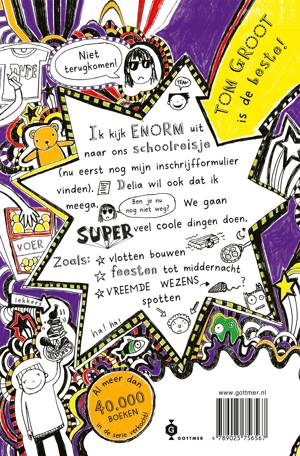 Niet
terugkomen!
YEAH!
TOM GROOT
is de beste!
Ik kijk ENORM uit
naar ons schoolreisje
(nu eerst nog mijn inschrijfformulier
vinden). Delia wil ook dat ik
meega. Ben je nu
nog niet weg? We gaan
SUPERveel coole dingen doen.
Zoals: ★ vlotten bouwen
★ feesten tot middernacht
★ VREEMDE WEZENS
spotten
?
VOER
lekker!
ha! ha!
Al meer dan
40.000
BOEKEN
in de serie verkocht!
G
GOTTMER
www.gottmer.nl
9 789025 756567